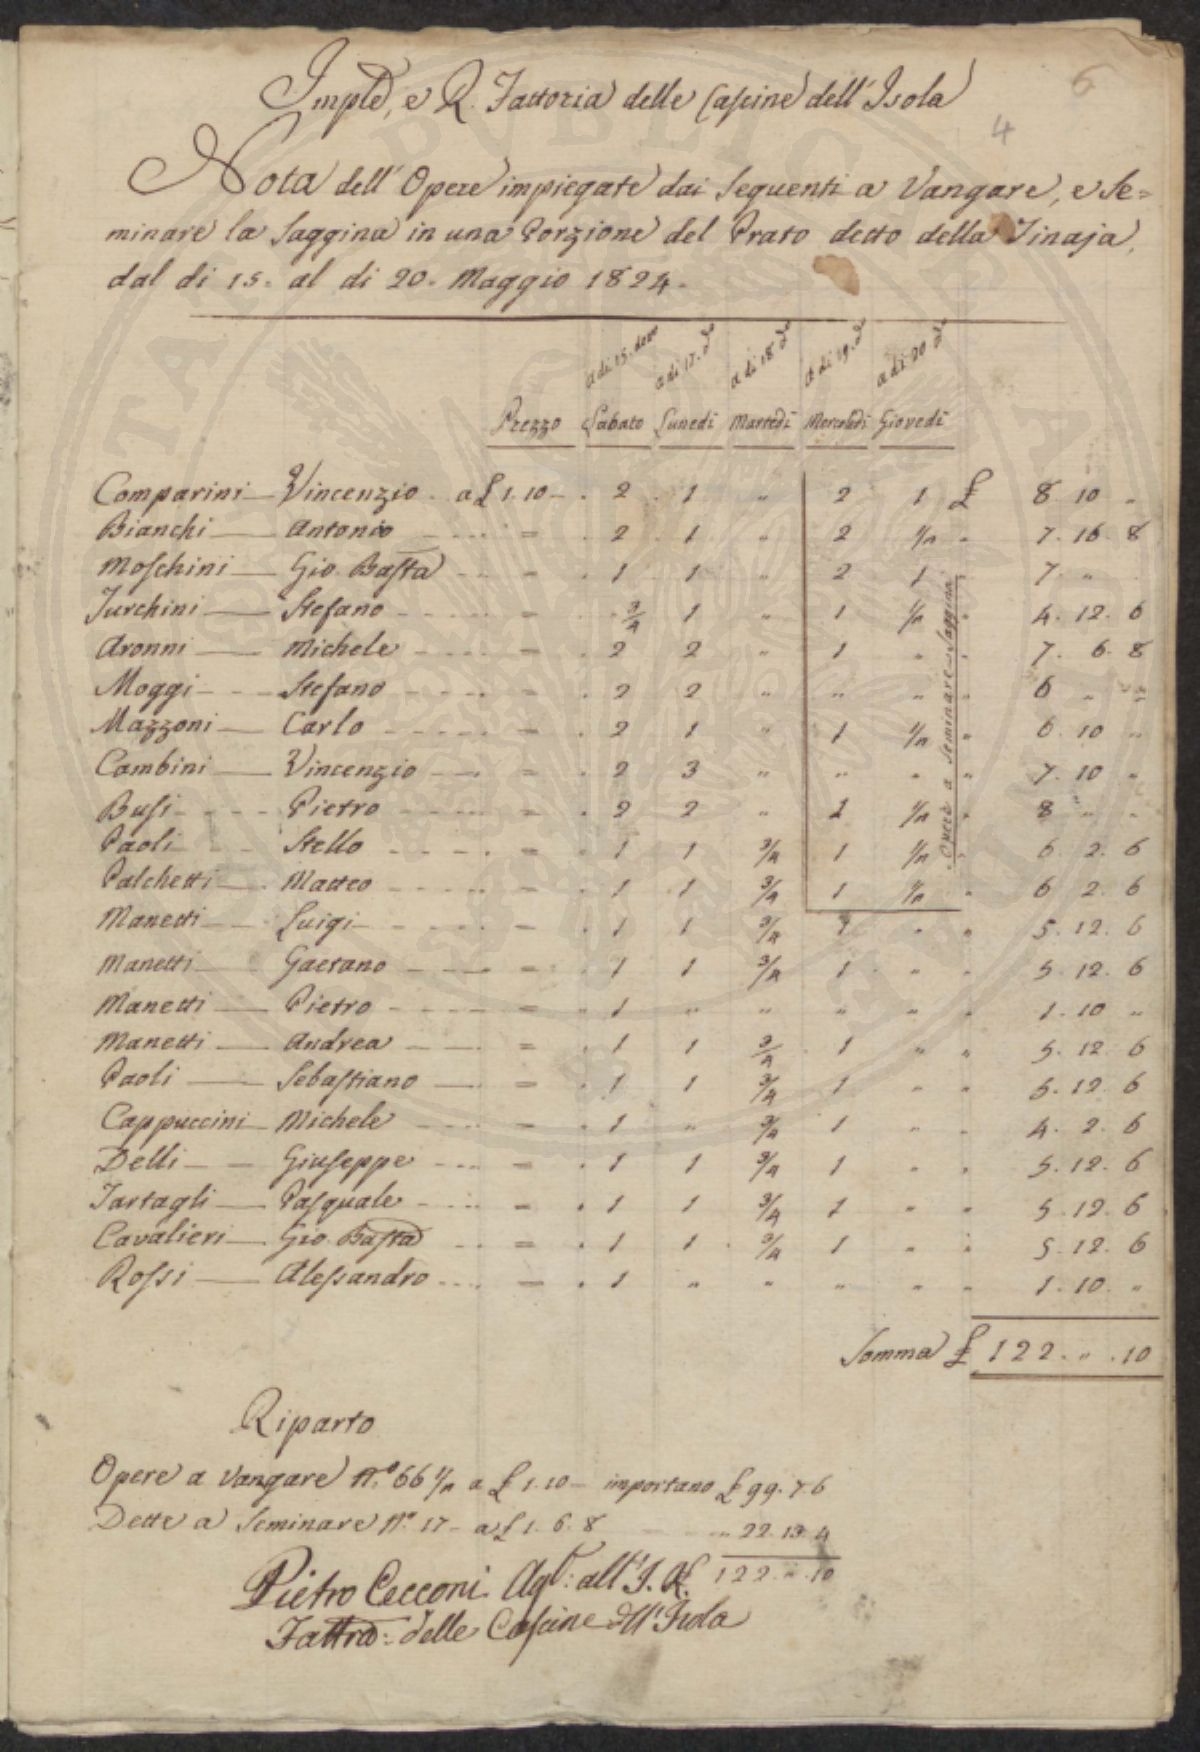 Imple, e R. Fattoria delle Cascine dell'Isola
6
4
Nota dell'Opere impiegate dai Seguenti a Vangare, e Se=
minare la Saggina in una Porzione del Prato detto della Tinaja,
dal di 15. al di 20. Maggio 1824.
a di 15. detto a di 17. do a di 18 do a di 19. do a di 20 do
Prezzo Sabato Lunedi Martedi Mercoledi Giovedi
Comparini Vincenzio a £ 1.10 2 1 " 2 1 £ 8 10 "
Bianchi Antonio = 2 1 " 2 1/2 " 7. 16. 8
Moschini Gio. Basta = 1 1 " 2 1 7. "
Turchini Stefano = 3/4 1 " 1 1/2 " 4. 12. 6
Aronni Michele = 2 2 " 1 " " 7. 6. 8
Moggi Stefano = 2 2 " " " " 6 " "
Mazzoni Carlo = 2 1 " 1 1/2 " 6. 10 "
Cambini Vincenzio = 2 3 " " " " 7. 10 "
Busi Pietro = 2 2 " 1 1/2 " 8 " "
Paoli Stello = 1 1 3/4 1 1/2 " 6. 2. 6
Palchetti Matteo = 1 1 3/4 1 1/2 " 6 2. 6
Opere a Seminare Saggina
Manetti Luigi = 1 1 3/4 1 " " 5. 12. 6
Manetti Gaetano = 1 1 3/4 1 " " 5. 12. 6
Manetti Pietro = 1 " " " " " 1. 10 "
Manetti Andrea = 1 1 3/4 1 " " 5. 12. 6
Paoli Sebastiano = 1 1 3/4 1 " " 5. 12. 6
Cappuccini Michele = 1 " 3/4 1 " " 4. 2. 6
Delli Giuseppe = 1 1 3/4 1 " " 5. 12. 6
Tartagli Pasquale = 1 1 3/4 1 " " 5. 12. 6
Cavalieri Gio. Basta = 1 1 3/4 1 " " 5. 12. 6
Rossi Alessandro = 1 " " " " " 1. 10. "
Somma £ 122. " . 10
Riparto
Opere a Vangare No. 66 1/4 a £ 1.10 importano £ 99. 7. 6
Dette a Seminare No. 17 a £ 1. 6. 8 " 22. 13. 4
122. " 10
Pietro Cecconi Agte: all'I. R.
Fattria: delle Cascine dell'Isola